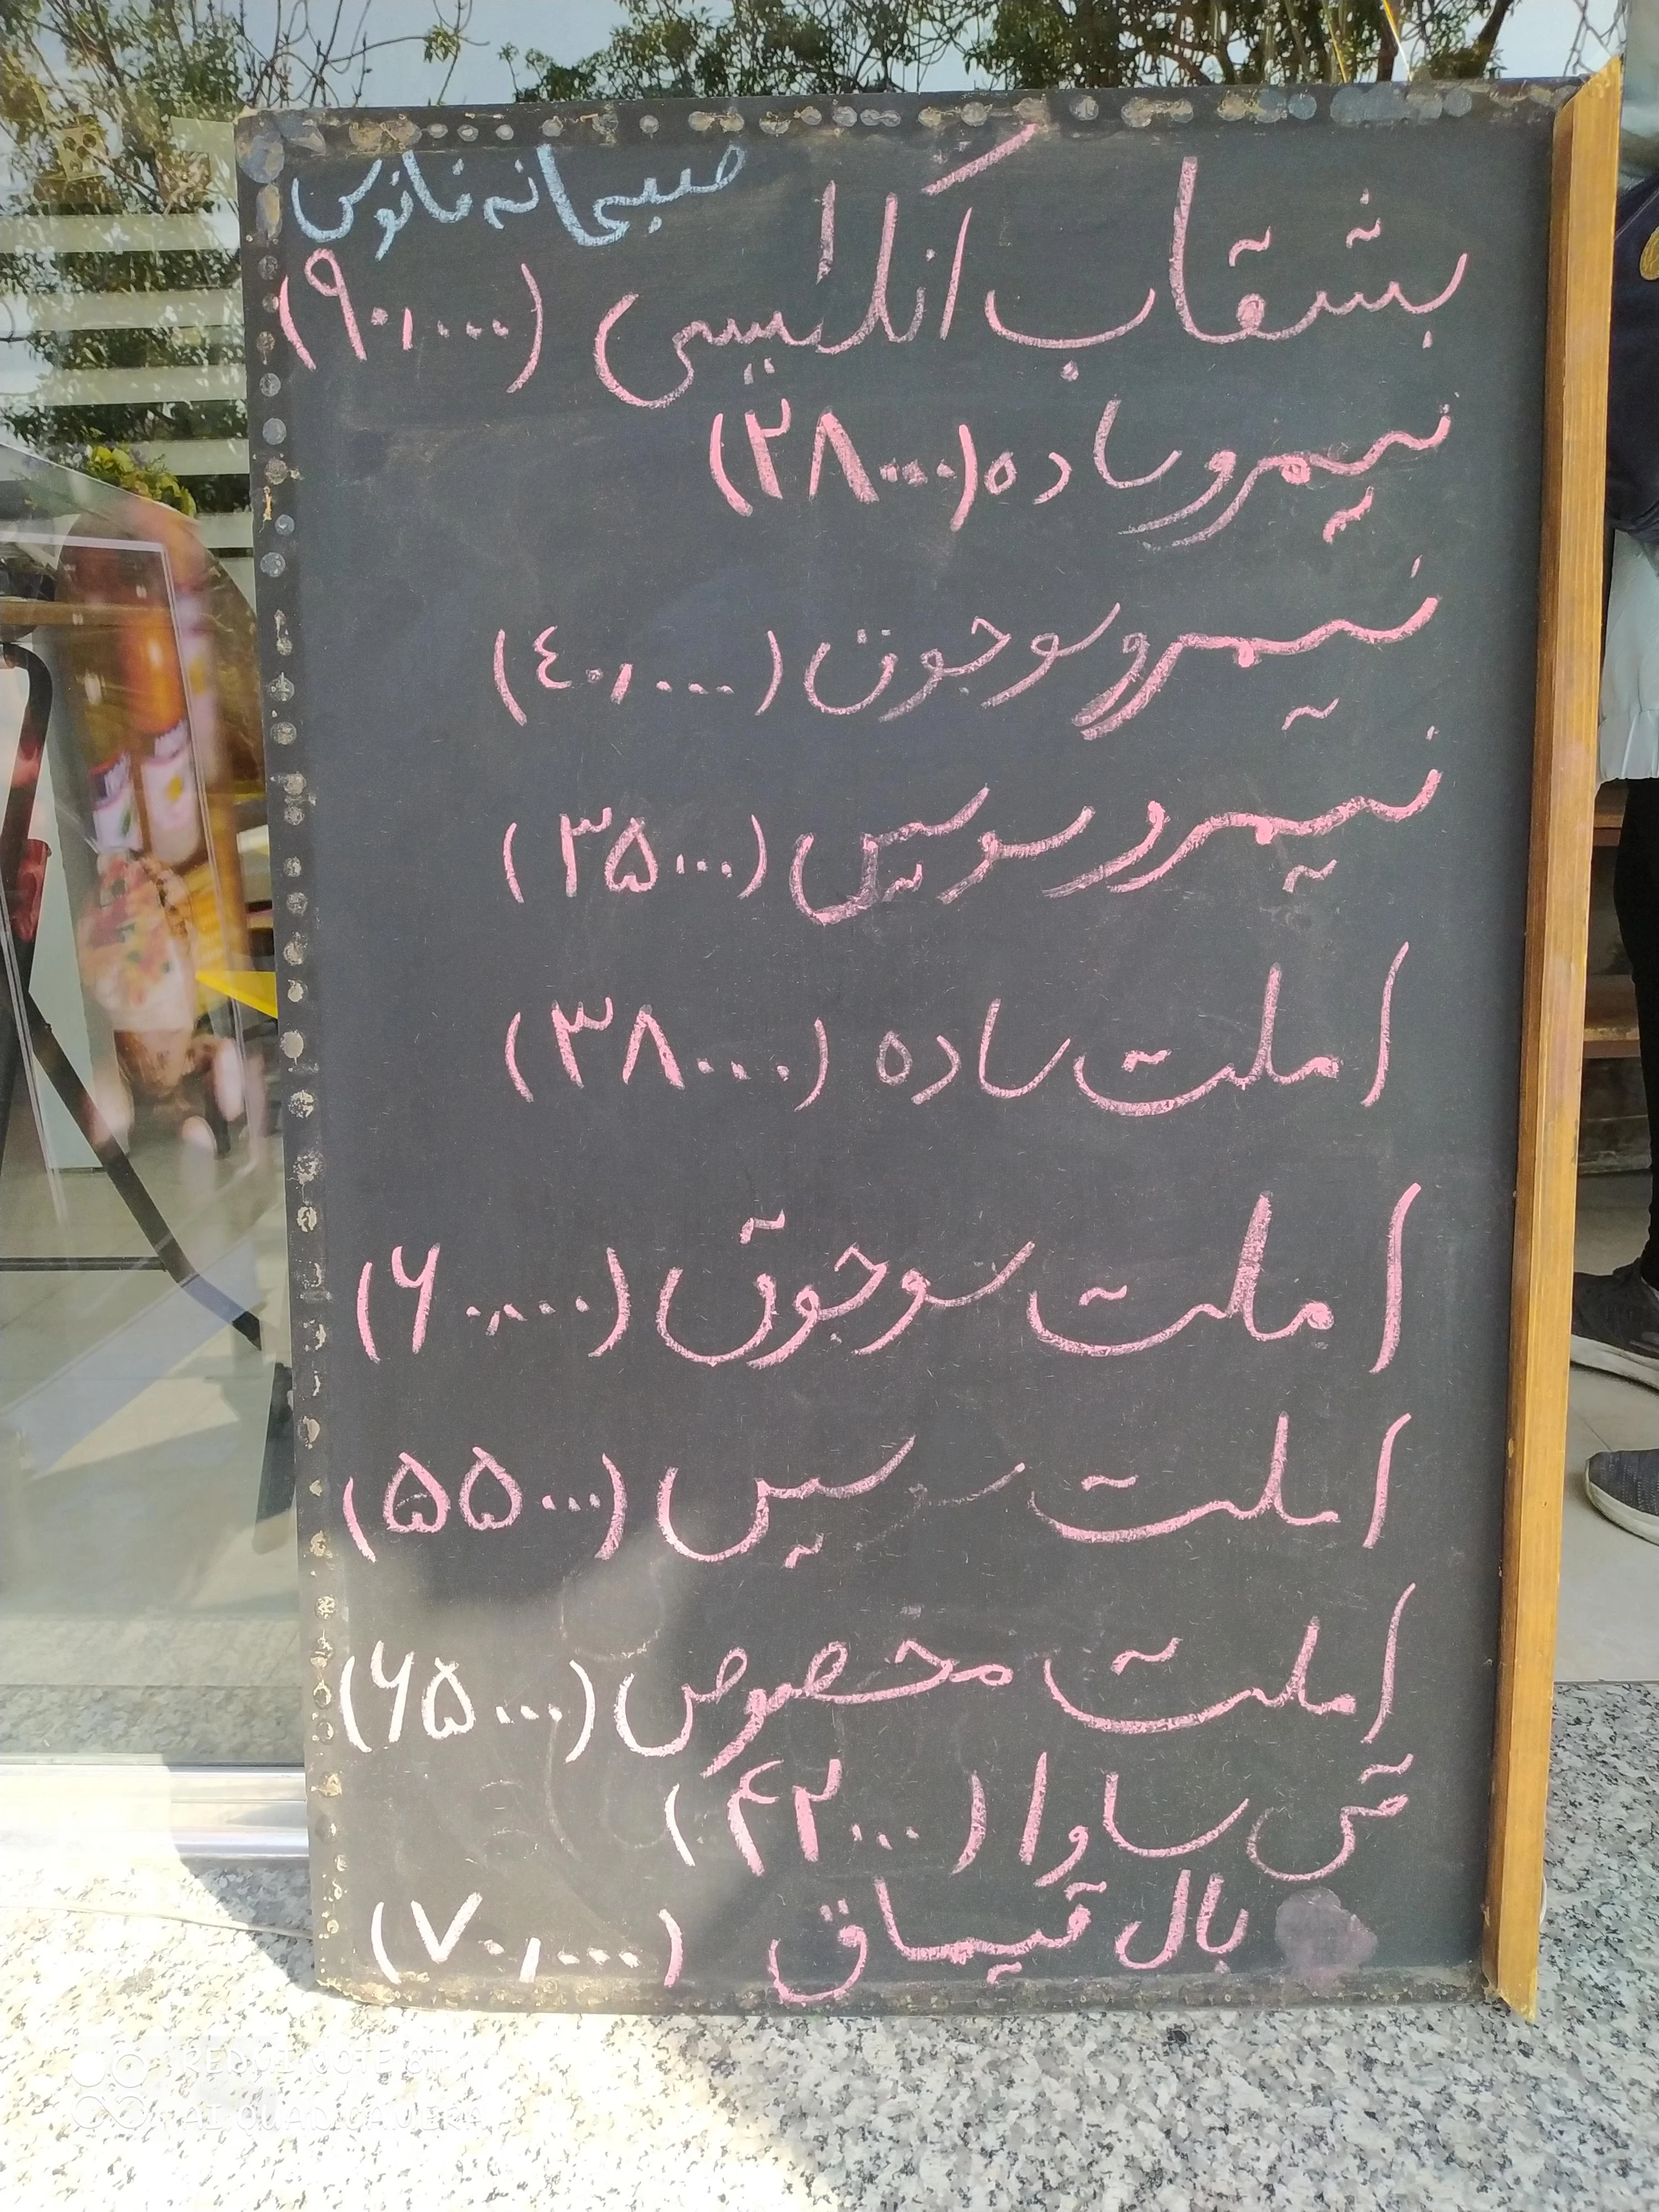 صبحانه فانوس
بشقاب انگلیسی (۹۰,۰۰۰)
نیمرو ساده (۲۸۰۰۰)
نیمرو سوجوق (٤۰,۰۰۰)
نیمرو سوسیس (۳۵۰۰۰)
املت ساده (۳۸۰۰۰)
املت سوجوق (۶۰,۰۰۰)
املت سوسیس (۵۵۰۰۰)
املت مخصوص (۶۵۰۰۰)
ساوا (۴۲۰۰۰)
بال قیماق (۷۰,۰۰۰)
REDMI NOTE 8T
AI QUAD CAMERA